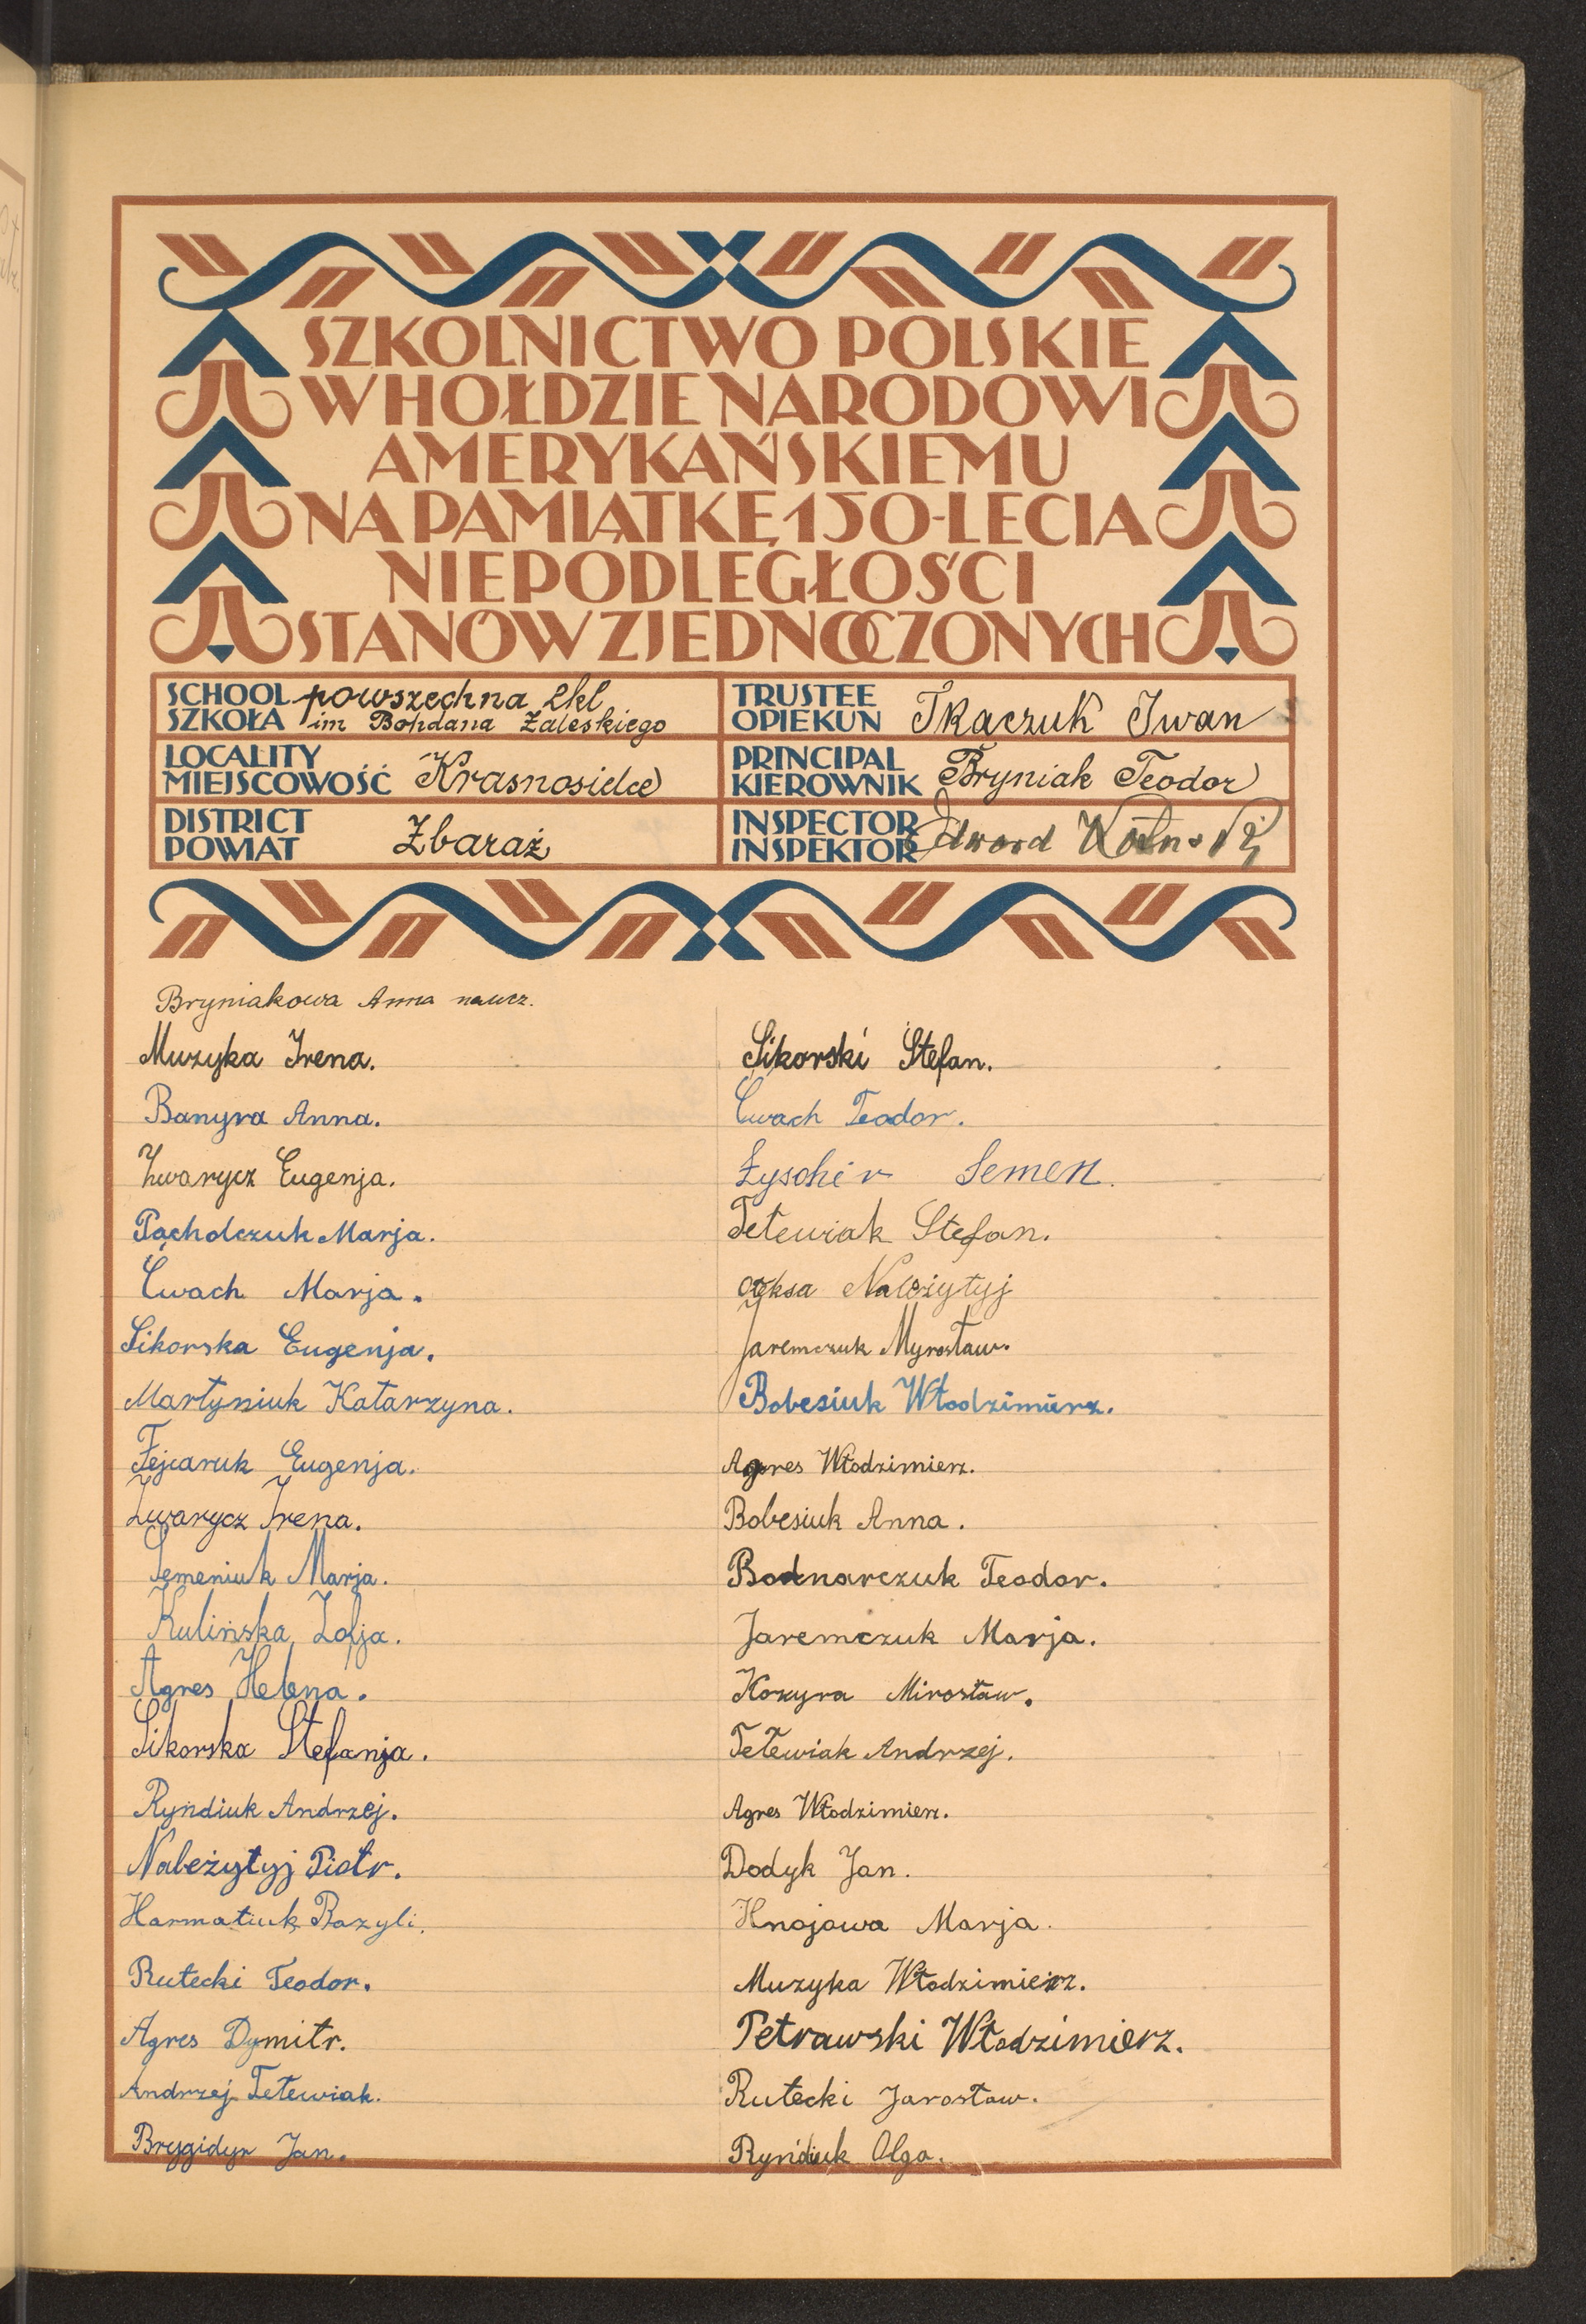 SZKOLNICTWO POLSKIE
W HOŁDZIE NARODOWI
AMERYKAŃSKIEMU
NA PAMIĄTKĘ 150-LECIA
NIEPODLEGŁOŚCI
STANÓW ZJEDNOCZONYCH
SCHOOL SZKOŁA powszechna 2kl
im Bohdana Zaleskiego
TRUSTEE OPIEKUN Tkaczuk Iwan
LOCALITY MIEJSCOWOŚĆ Krasnosielce
PRINCIPAL KIEROWNIK Bryniak Teodor
DISTRICT POWIAT Zbaraż
INSPECTOR INSPEKTOR Edward
Bryniakowa Anna naucz.
Muzyka Irena.
Banyra Anna.
Zwarycz Eugenja.
Pacholczuk Marja.
Cwach Marja.
Sikorska Eugenja.
Martyniuk Katarzyna.
Fejcaruk Eugenja.
Zwarycz Irena.
Semeniuk Marja.
Kulińska Zofja.
Agres Helena.
Sikorska Stefanja.
Ryndiuk Andrzej.
Należytyj Piotr.
Harmatiuk Bazyli.
Rutecki Teodor.
Agres Dymitr.
Andrzej Tetewiak.
Brygidyr Jan.
Sikorski Stefan.
Cwach Teodor.
Semen.
Tetewiak Stefan.
Należytyj
Jaremczuk Myrosław.
Bobesiuk Włodzimierz.
Agres Włodzimierz.
Bobesiuk Anna.
Bodnarczuk Teodor.
Jaremczuk Marja.
Kozyra Mirosław.
Tetewiak Andrzej.
Agres Włodzimierz.
Dodyk Jan.
Hnojowa Marja.
Muzyka Włodzimierz.
Petrawski Włodzimierz.
Rutecki Jarosław.
Ryndiuk Olga.